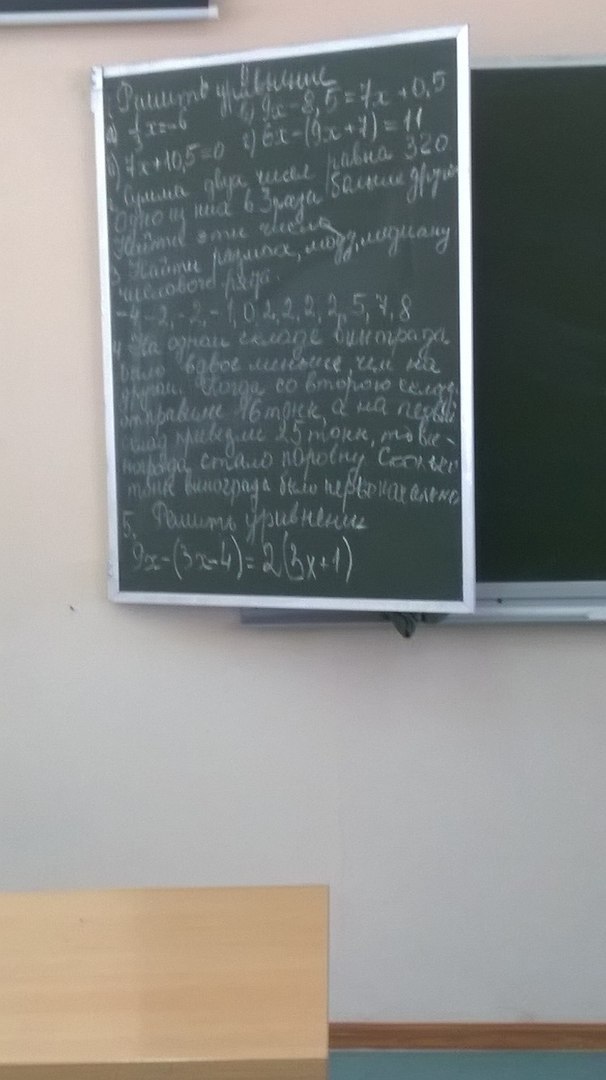 Решить уравнение
x=-6 9x-8,5=7x+0,5
б) 7x+10,5=0 г) 6x-(9x+7)=11
Сумма двух чисел равна 320
Одно из них в 3 раза больше другого
Найти эти числа
3. Найти размах, моду, медиану
числового ряда.
-4,-2,-2,-1,0,2,2,2,2,5,7,8
4. На одном складе винограда
было вдвое меньше, чем на
другом. Когда со второго склада
отправили 16 тонн, а на первый
склад привезли 25 тонн, то ви-
нограда стало поровну Сколько
тонн винограда было первоначально
5. Решить уравнение
9x-(3x-4)=2(3x+1)